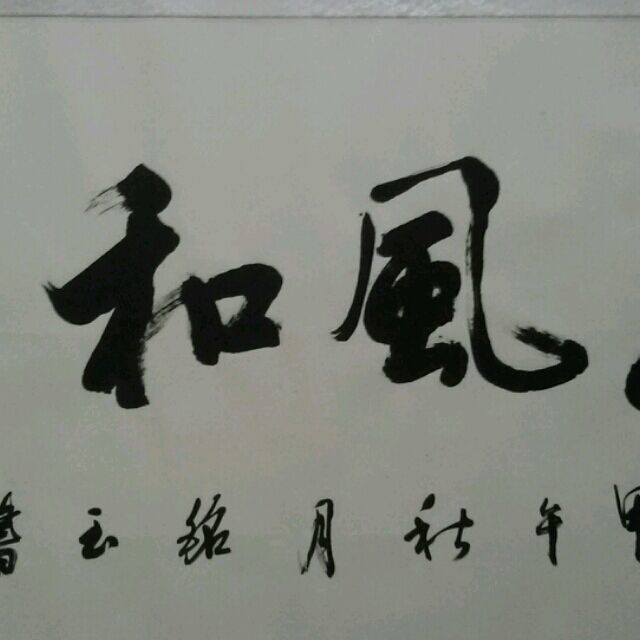 風和
甲午秋月銘玉書